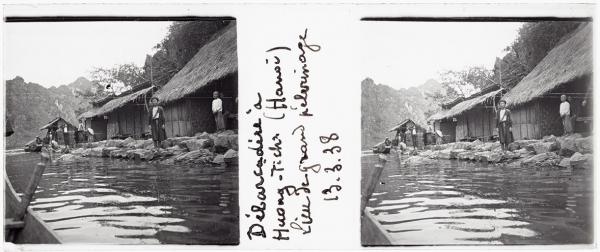 Débarcadère à
Huong-Tichs (Hanoï)
Lieu de grand pélerinage
13.3.38